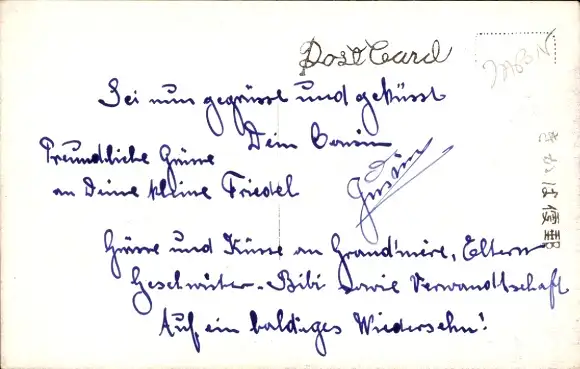 Post Card
JAPAN
Sei nun gegrüsst und geküsst
Dein Cousin
Freundliche Grüsse
an Deine kleine Friedel
Grüsse und Küsse an Grand'mère, Eltern
Geschwister - Bibi sowie Verwandtschaft
Auf ein baldiges Wiedersehn!
きかは便郵